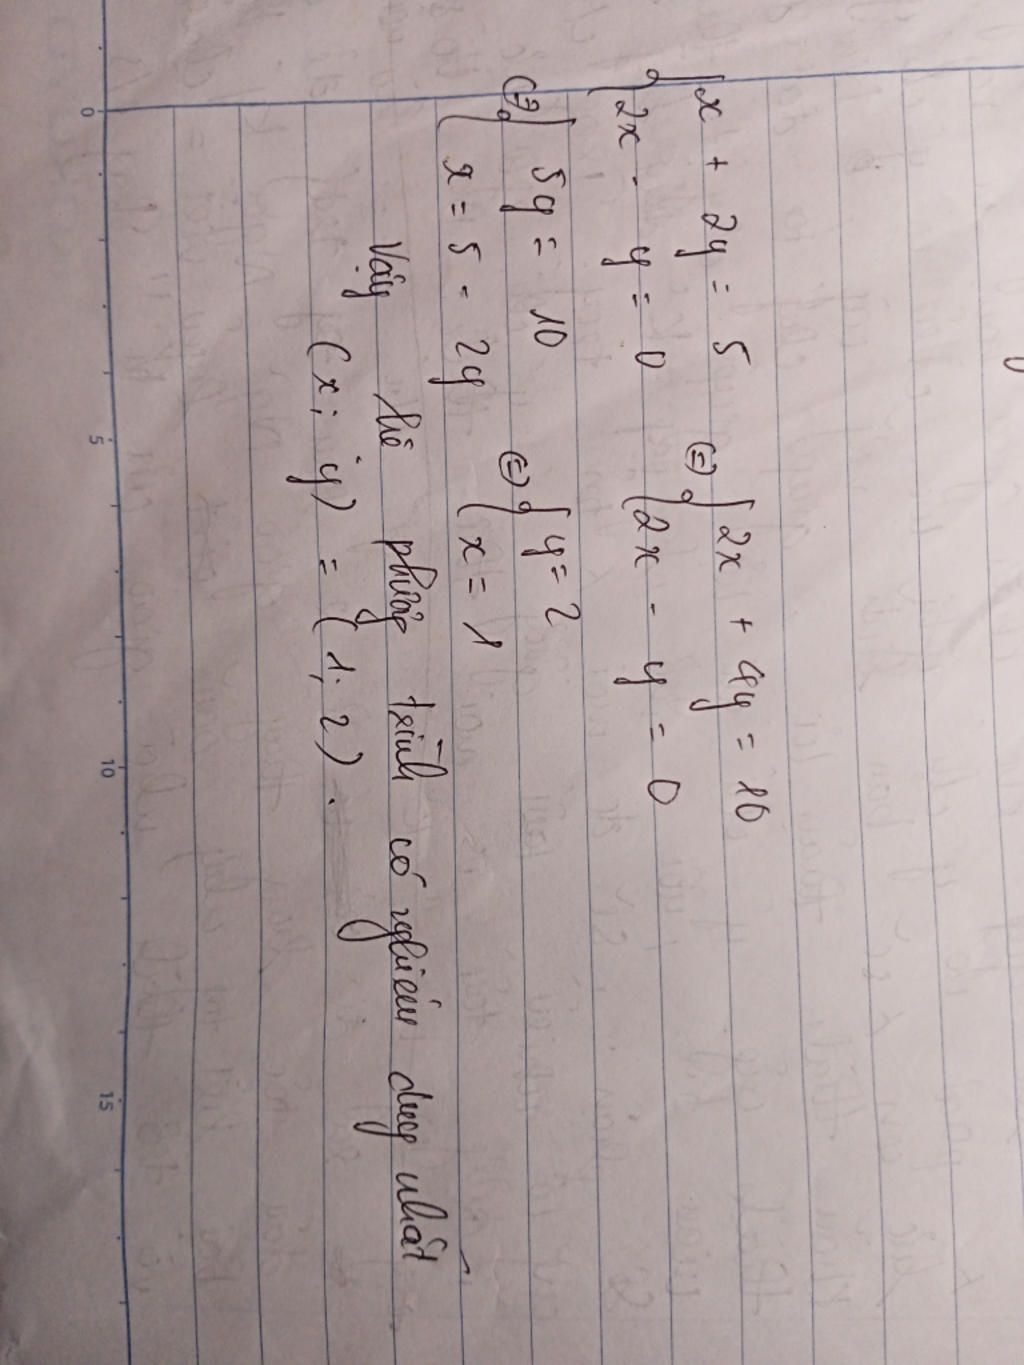 { x + 2y = 5 (=) { 2x + 4y = 10
{ 2x - y = 0 { 2x - y = 0
(=) { 5y = 10 (=) { y = 2
{ x = 5 - 2y { x = 1
Vậy hê phương trình có nghiệm duy nhất
(x; y) = (1; 2).
0 5 10 15